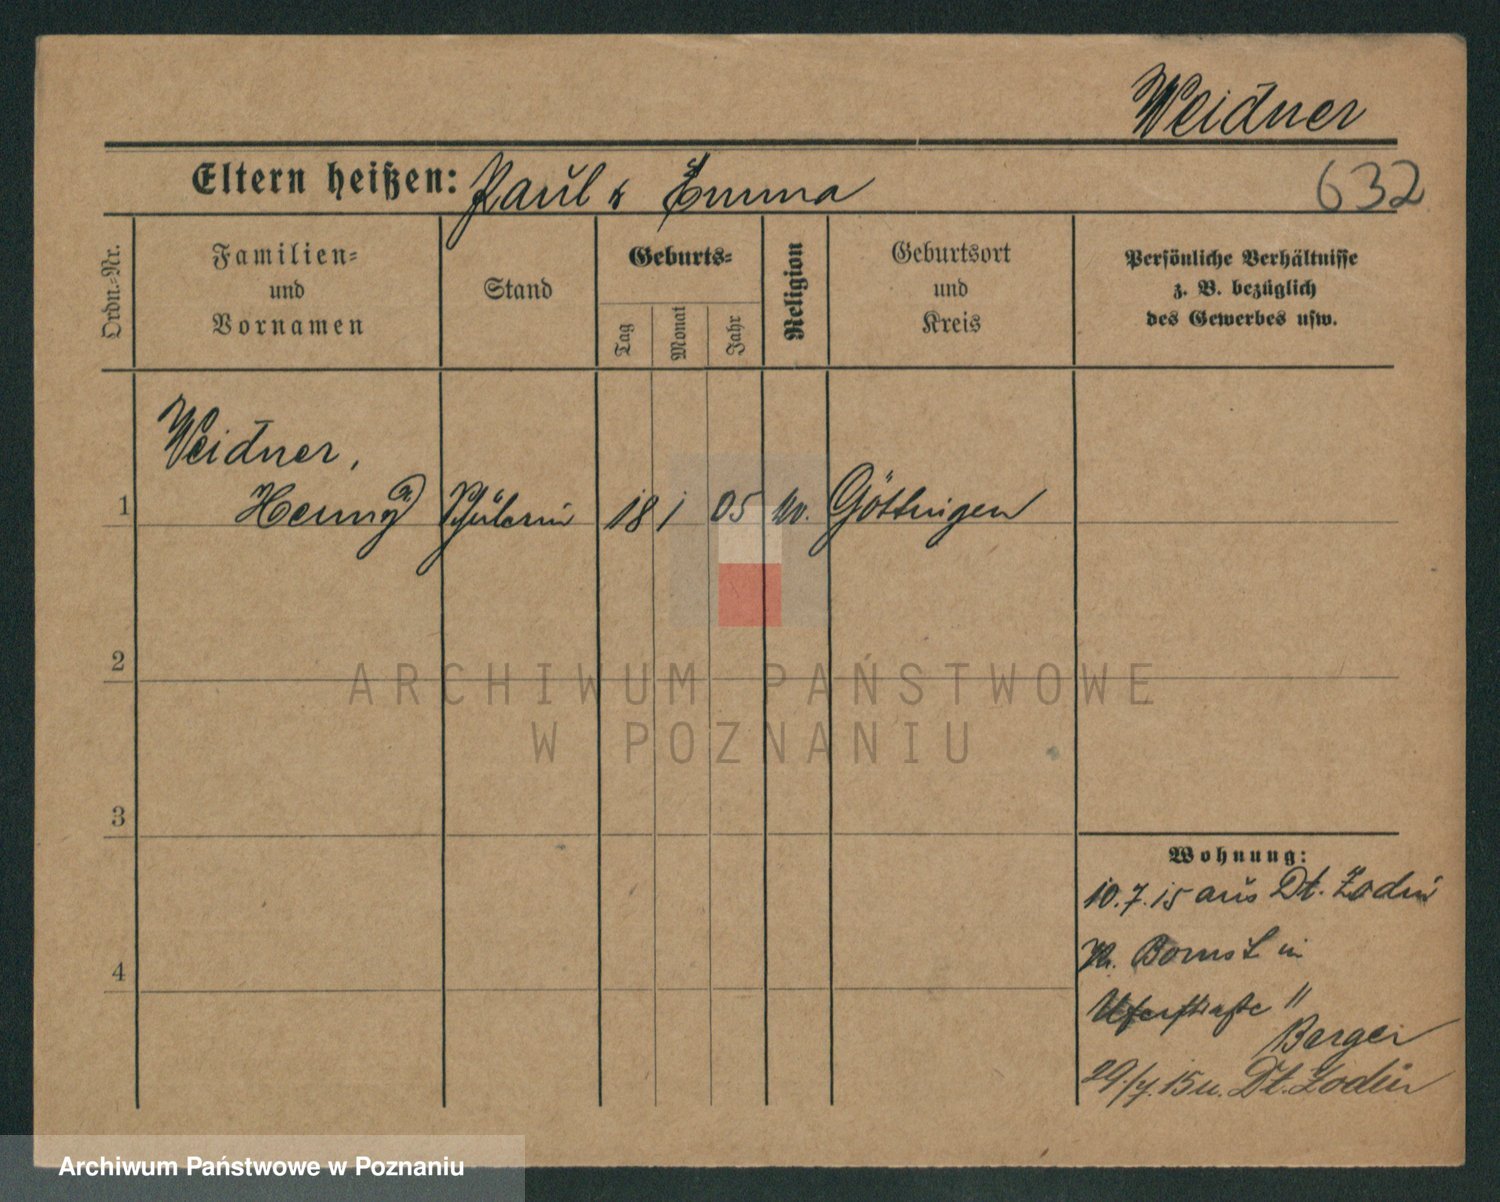 Weidner
Eltern heißen: Paul & Emma
632
Ordn.-Nr.
Familien-
und
Vornamen
Stand
Geburts-
Tag
Monat
Jahr
Religion
Geburtsort
und
Kreis
Persönliche Verhältnisse
z. B. bezüglich
des Gewerbes usw.
Weidner,
1 Henny Schülerin 18 1 05 ev. Göttingen
2
ARCHIWUM PAŃSTWOWE
W POZNANIU
3
Wohnung:
10.7.15 aus Dt.
4 Kr. Bomst in
Uferstraße 11
Berger
29./7. 15 u. Dt.
Archiwum Państwowe w Poznaniu